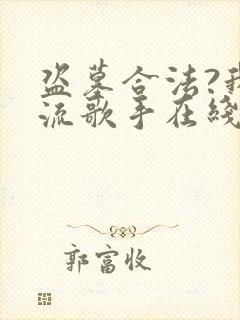 盗墓合法?我
流歌手在线
郭富收